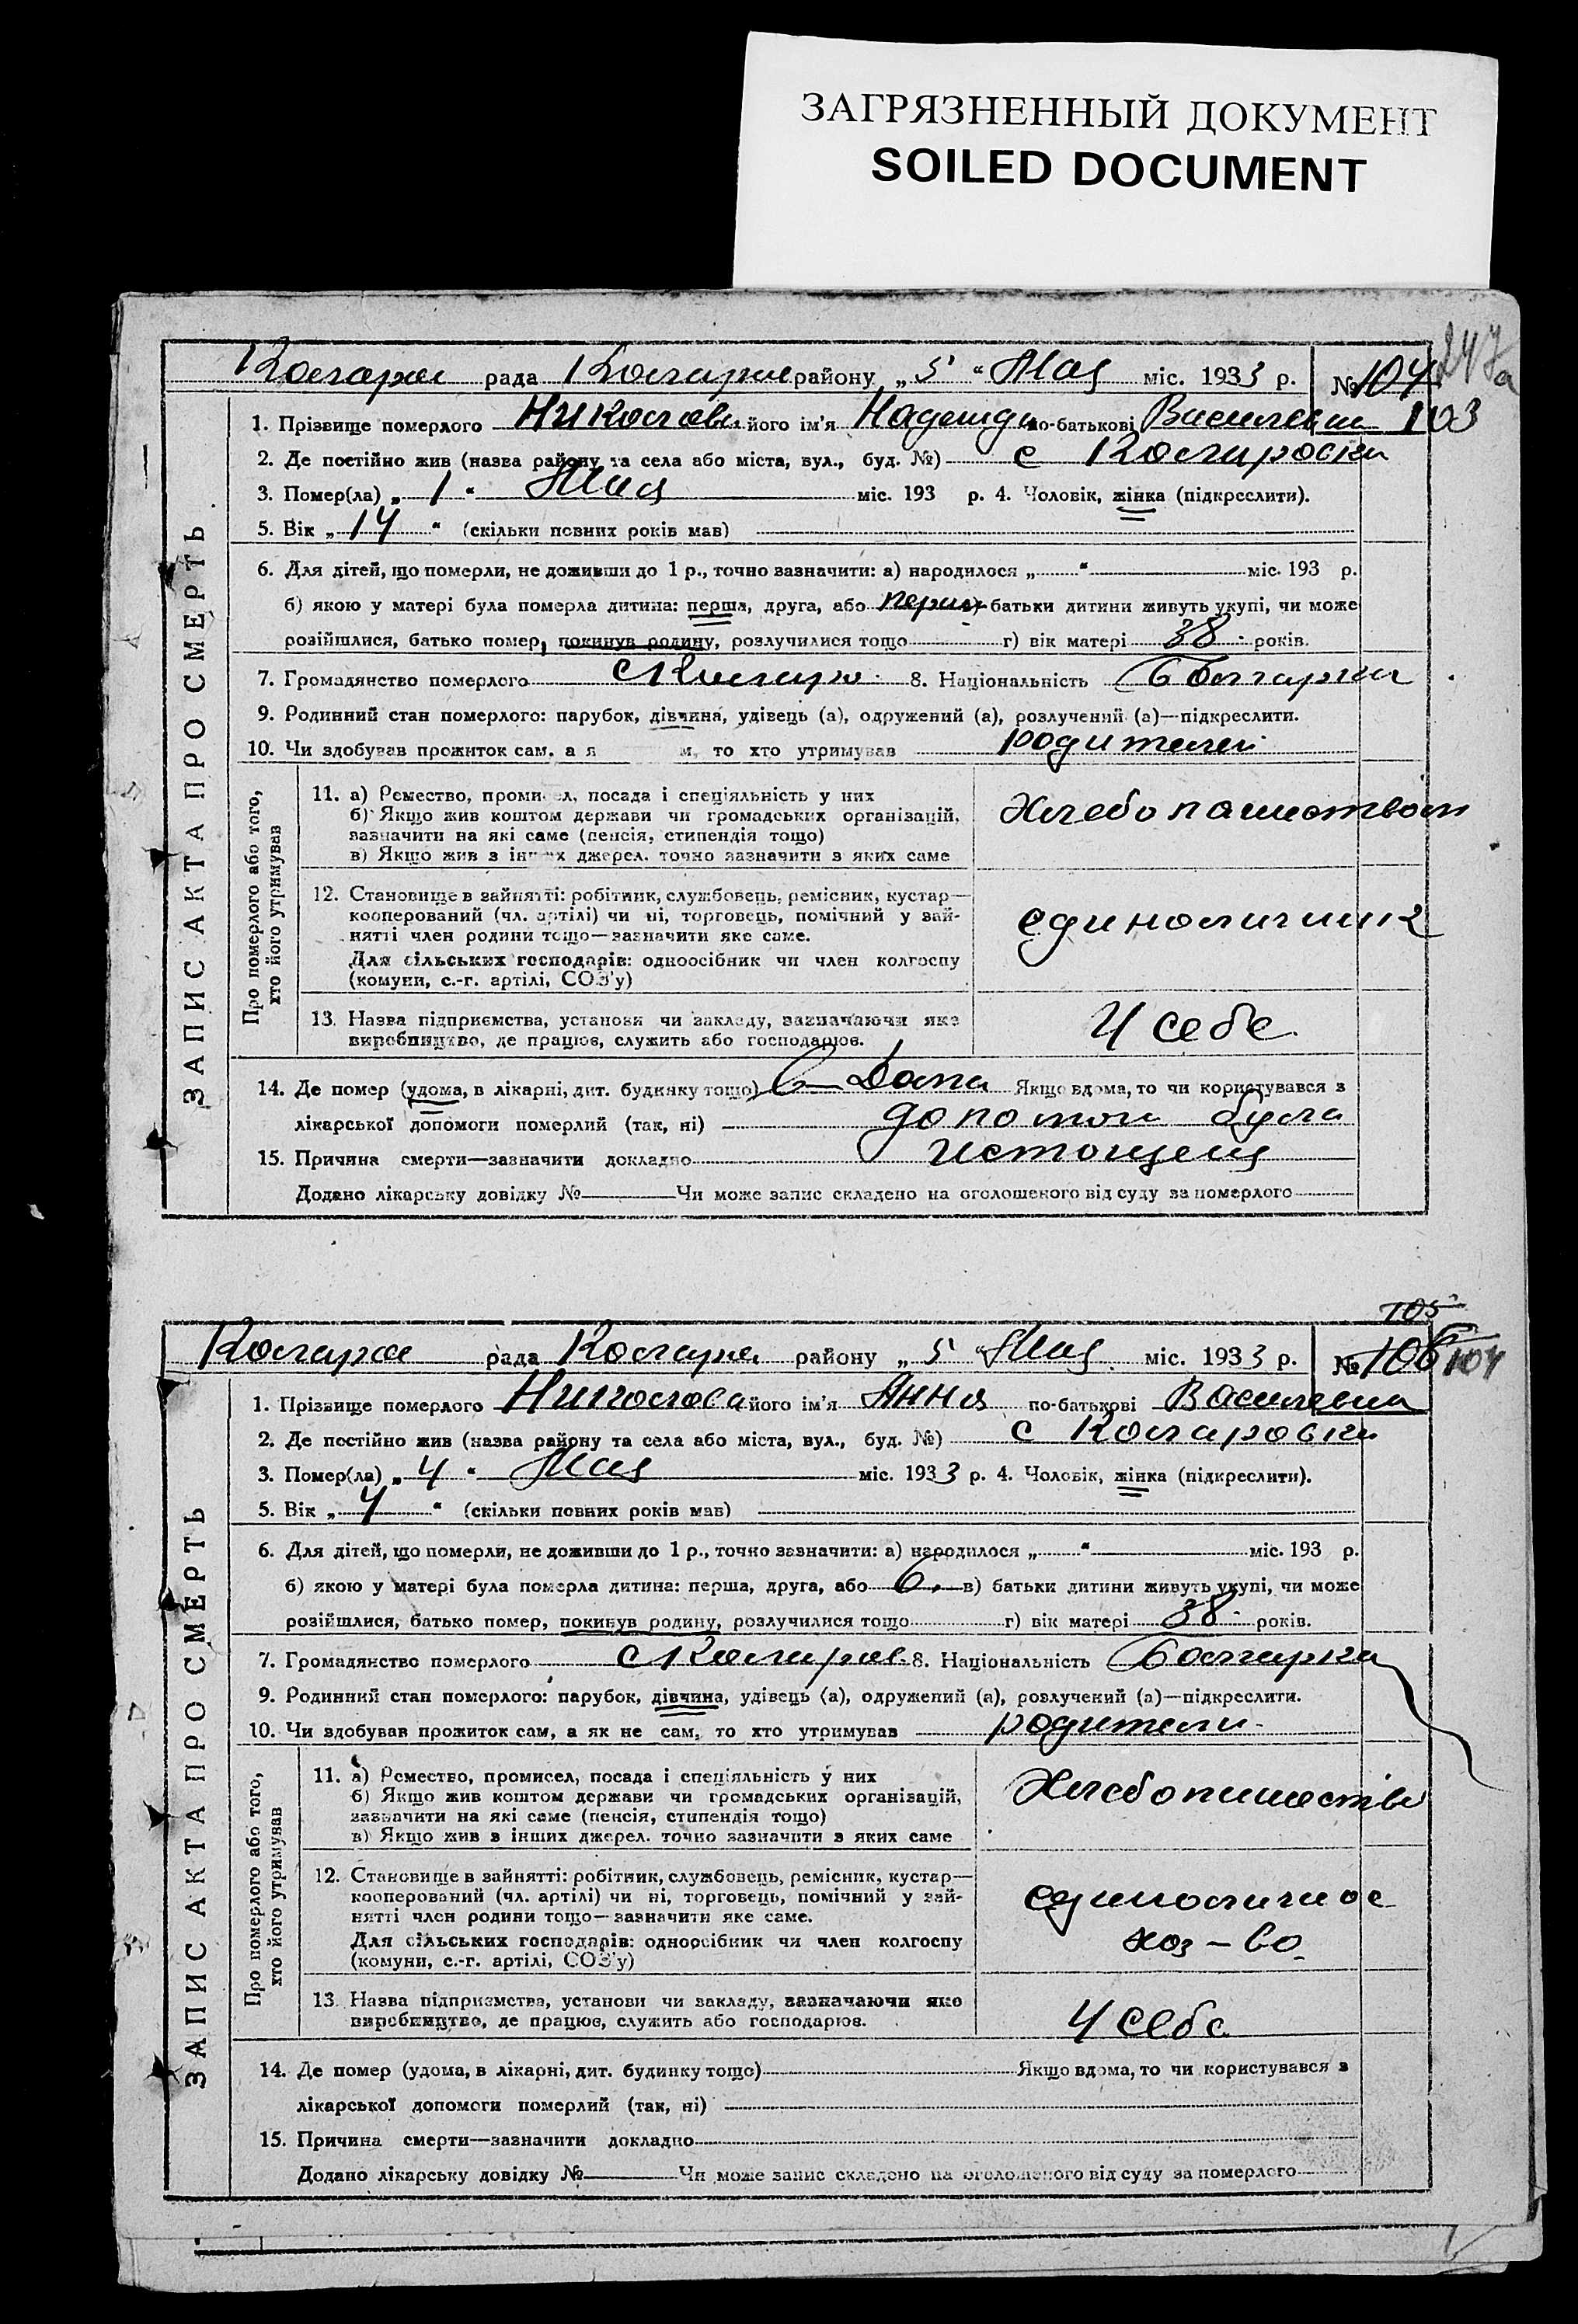 ЗАГРЯЗНЕННЫЙ ДОКУМЕНТ
SOILED DOCUMENT
247а
рада району „5“ Мая міс. 1933 р. № 104
103
1. Прізвище померлого Николаева його ім'я Надежда по-батькові Васильевна
2. Де постійно жив (назва району та села або міста, вул., буд. №) с Коларовка
3. Помер(ла) „1“ Мая міс. 193 р. 4. Чоловік, жінка (підкреслити).
5. Вік „14“ (скільки повних років мав)
6. Для дітей, що померли, не доживши до 1 р., точно зазначити: а) народилося „ “ міс. 193 р.
б) якою у матері була померла дитина: перша, друга, або батьки дитини живуть укупі, чи може
розійшлися, батько помер, покинув родину, розлучилися тощо г) вік матері 38 років.
7. Громадянство померлого 8. Національність Болгарка
9. Родинний стан померлого: парубок, дівчина, удівець (а), одружений (а), розлучений (а)—підкреслити.
10. Чи здобував прожиток сам, а я м, то хто утримував родители
11. а) Ремество, промисел, посада і спеціяльність у них
б) Якщо жив коштом держави чи громадських організацій,
зазначити на які саме (пенсія, стипендія тощо)
в) Якщо жив з інших джерел. точно зазначити з яких саме
Хлебопашество
12. Становище в зайнятті: робітник, службовець, ремісник, кустар—
кооперований (чл. артілі) чи ні, торговець, помічний у зай-
нятті член родини тощо—зазначити яке саме.
Для сільських господарів: одноосібник чи член колгоспу
(комуни, с.-г. артілі, СОЗ'у)
единоличник
13. Назва підприємства, установи чи закладу, зазначаючи яке
виробництво, де працює, служить або господарює.
У себе
14. Де помер (удома, в лікарні, дит. будинку тощо) Дома Якщо вдома, то чи користувався з
лікарської допомоги померлий (так, ні) была
15. Причина смерти—зазначити докладно Истощение
Додано лікарську довідку № Чи може запис складено на оголошеного від суду за померлого
ЗАПИС АКТА ПРО СМЕРТЬ
Про померлого або того,
хто його утримував
105
рада району „5“ Мая міс. 1933 р. № 106
104
1. Прізвище померлого Николаева його ім'я Анна по-батькові Васильевна
2. Де постійно жив (назва району та села або міста, вул., буд. №) с Коларовка
3. Помер(ла) „4“ Мая міс. 1933 р. 4. Чоловік, жінка (підкреслити).
5. Вік „4“ (скільки повних років мав)
6. Для дітей, що померли, не доживши до 1 р., точно зазначити: а) народилося „ “ міс. 193 р.
б) якою у матері була померла дитина: перша, друга, або 6. в) батьки дитини живуть укупі, чи може
розійшлися, батько помер, покинув родину, розлучилися тощо г) вік матері 38 років.
7. Громадянство померлого с Коларов. 8. Національність Болгарка
9. Родинний стан померлого: парубок, дівчина, удівець (а), одружений (а), розлучений (а)—підкреслити.
10. Чи здобував прожиток сам, а як не сам, то хто утримував родители
11. а) Ремество, промисел, посада і спеціяльність у них
б) Якщо жив коштом держави чи громадських організацій,
зазначити на які саме (пенсія, стипендія тощо)
в) Якщо жив з інших джерел. точно зазначити з яких саме
Хлебопашество
12. Становище в зайнятті: робітник, службовець, ремісник, кустар—
кооперований (чл. артілі) чи ні, торговець, помічний у зай-
нятті член родини тощо—зазначити яке саме.
Для сільських господарів: одноосібник чи член колгоспу
(комуни, с.-г. артілі, СОЗ'у)
единоличное
хоз-во
13. Назва підприємства, установи чи закладу, зазначаючи яке
виробництво, де працює, служить або господарює.
У себе
14. Де помер (удома, в лікарні, дит. будинку тощо) Якщо вдома, то чи користувався з
лікарської допомоги померлий (так, ні)
15. Причина смерти—зазначити докладно
Додано лікарську довідку № Чи може запис складено на оголошеного від суду за померлого
ЗАПИС АКТА ПРО СМЕРТЬ
Про померлого або того,
хто його утримував